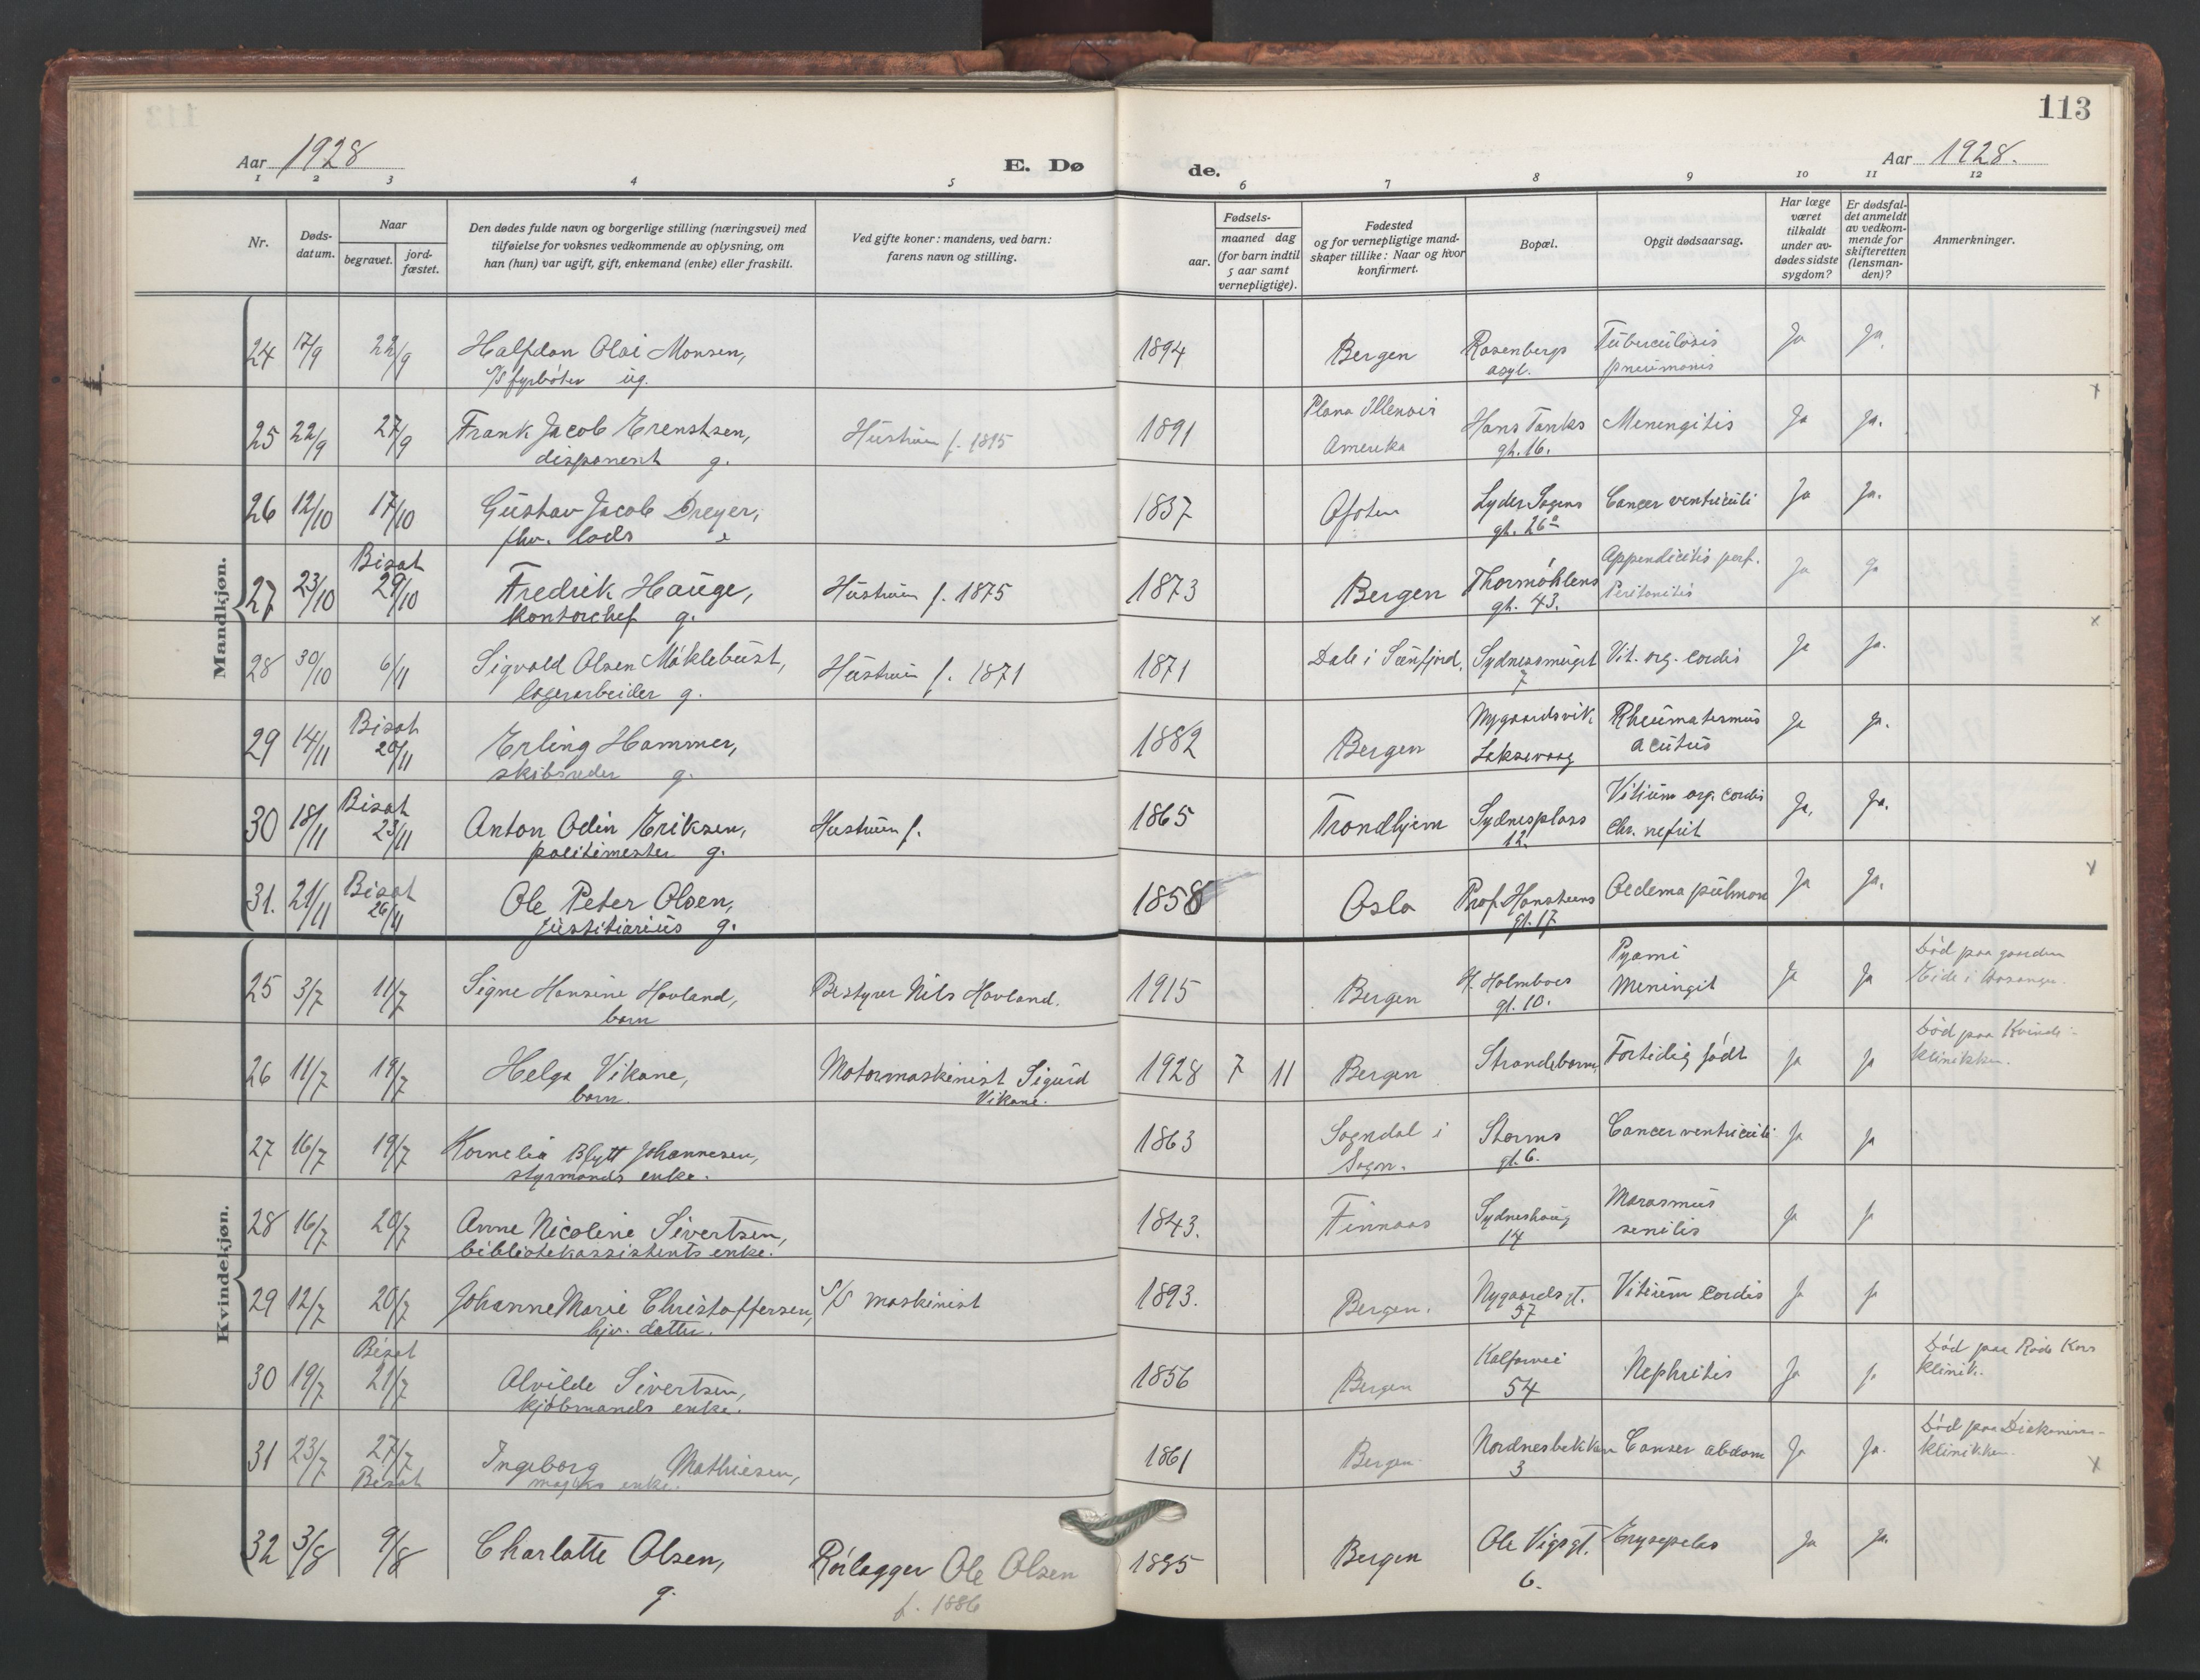 113
Aar 1928
E. Dø
de.
Aar 1928.
1 2 3 4 5 6 7 8 9 10 11 12
Nr.
Døds-
datum.
Naar
begravet.
jord-
fæstet.
Den dødes fulde navn og borgerlige stilling (næringsvei) med
tilføielse for voksnes vedkommende av oplysning, om
han (hun) var ugift, gift, enkemand (enke) eller fraskilt.
Ved gifte koner: mandens, ved barn:
farens navn og stilling.
Fødsels-
aar.
maaned dag
(for barn indtil
5 aar samt
vernepligtige).
Fødested
og for vernepligtige mand-
skaper tillike: Naar og hvor
konfirmert.
Bopæl.
Opgit dødsaarsag.
Har læge
været
tilkaldt
under av-
dødes sidste
sygdom?
Er dødsfal-
det anmeldt
av vedkom-
mende for
skifteretten
(lensman-
den)?
Anmerkninger.
Mandkjøn.
24 17/9 22/9 Halfdan Olai Monsen, 1894 Bergen Rosenbergs Tuberculosis Ja Ja.
S/S fyrbøter ug. asyl. pneumonis
25 22/9 27/9 Frank Jacob Erenstsen, Hustruen f. 1895 1891 Plana Illenoir Hans Tanks Meningitis Ja Ja.
disponent g. Amerika gt. 16.
26 12/10 17/10 Gustav Jacob Dreyer, 1837 Ofoten Lyder Sagens Cancer ventriculi Ja Ja.
fhv. lods e gt. 26a
27 23/10 Bisat 29/10 Fredrik Hauge, Hustruen f. 1875 1873 Bergen Thormøhlens Appendicitis perf. Ja Ja
kontorchef g. gt. 43. Peritonitis
28 30/10 6/11 Sigvald Olsen Møklebust, Hustruen f. 1871 1871 Dale i Søndfjord, Sydnessmuget Vit. org. cordis Ja Ja.
lagerarbeider g. 7
29 14/11 Bisat 20/11 Erling Hammer, 1882 Bergen Nygaardsvik Rheumatismus Ja Ja.
skibsreder g. Laksevaag acutus
30 18/11 Bisat 23/11 Anton Odin Eriksen, Hustruen f. 1865 Trondhjem Sydnesplass Vitium org. cordis Ja, Ja.
politimester g. 12. Chr. nefrit
31. 21/11 Bisat 26/11 Ole Peter Olsen, 1858 Oslo Prof. Hansteens Oedema pulmon Ja Ja.
justitiarius g. gt. 17
Kvindekjøn.
25 3/7 11/7 Signe Hansine Hovland, Bestyrer Nils Hovland. 1915 Bergen H. Holmboes Pyæmi Ja Ja Død paa gaarden
barn gt. 10. Meningit Eide i Hosanger.
26 11/7 19/7 Helga Vikane, Motormaskinist Sigurd 1928 7 11 Bergen Strandebarm, Fortidig født Ja Ja Død paa Kvinde-
barn. Vikane. klinikken.
27 16/7 19/7 Kornelia Blytt Johannesen, 1863 Sogndal i Storms Cancer ventriculi Ja Ja
styrmands enke. Sogn. gt. 6.
28 16/7 20/7 Anne Nicoline Sivertsen, 1843. Finnaas Sydneshaug Marasmus Ja Ja
bibliotekassistents enke. 14 senilis
29 12/7 20/7 Johanne Marie Christoffersen, S/S maskinist 1893. Bergen. Nygaardsgt. Vitium cordis Ja Ja
hjv. datter. 57
30 19/7 Bisat 21/7 Alvilde Sivertsen, 1856 Bergen Kalfarvei Nephritis Ja Ja Død paa Røde Kors
kjøbmands enke. 54 klinik.
31 23/7 27/7 Ingeborg Mathiesen, 1861 Bergen. Nordnesbakken Canser abdom Ja Ja. Død paa Diakonisse-
Bisat enke. 3 klinikken.
32 3/8 9/8 Charlotte Olsen, Rørlægger Ole Olsen 1895 Bergen Ole Vigsgt. Erysepelas Ja Ja.
g. f. 1886 6.